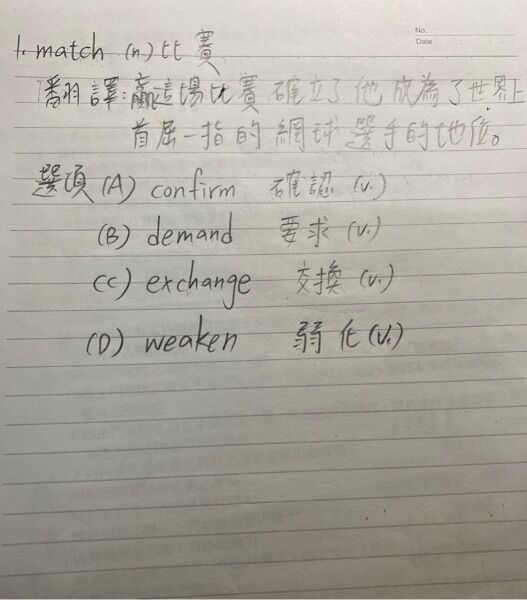 No.
Date
1. match (n) 比賽
翻譯:贏這場比賽確立了他成為了世界上
首屈一指的網球選手的地位。
選項(A) confirm 確認(v.)
(B) demand 要求(v.)
(C) exchange 交換(v.)
(D) weaken 弱化(v.)